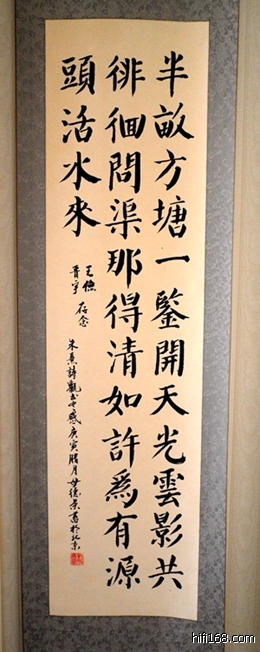 半畝方塘一鑒開天光雲影共
徘徊問渠那得清如許為有源
頭活水來
存念
朱熹詩觀書有感庚寅臘月世德泉書於北京
hifi168.com